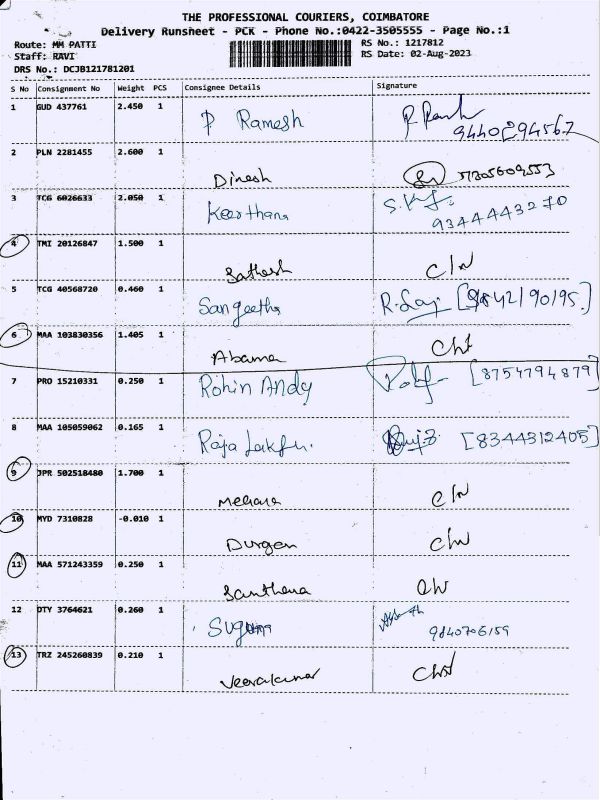 THE PROFESSIONAL COURIERS, COIMBATORE
Delivery Runsheet - PCK - Phone No.:0422-3505555 - Page No.:1
Route: MM PATTI RS No.: 1217812
Staff: RAVI RS Date: 02-Aug-2023
DRS No.: DCJB121781201
S No Consignment No Weight PCS Consignee Details Signature
1 GUD 437761 2.450 1 P Ramesh 9440294567
2 PLN 2281455 2.600 1 Dinesh
3 TCG 6026633 2.050 1 Keerthana 9344443270
4 TMI 20126847 1.500 1 Sathesh C/N
5 TCG 40568720 0.460 1 Sangeetha [9842190195.]
6 MAA 103830356 1.405 1 Abarna
7 PRO 15210331 0.250 1 Rohin Andy [8754794879]
8 MAA 105059062 0.165 1 Raja [8344312405]
9 JPR 502518480 1.700 1 C/N
10 MYD 7310828 -0.010 1 C/N
11 MAA 571243359 0.250 1 Santhana
12 DTY 3764621 0.260 1 9840706159
13 TRZ 245260839 0.210 1 Veerakumar